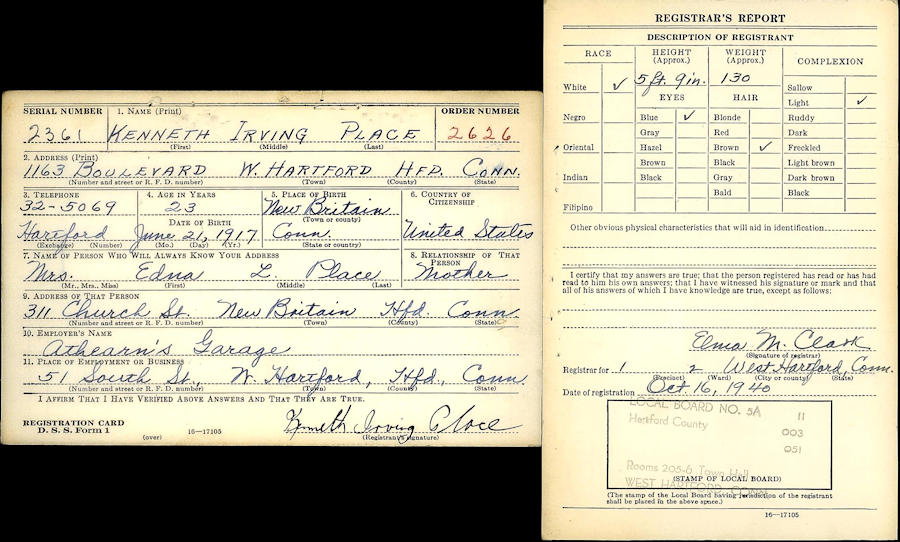 SERIAL NUMBER 1. NAME (Print) ORDER NUMBER
2361 KENNETH IRVING PLACE 2626
(First) (Middle) (Last)
2. ADDRESS (Print)
1163 BOULEVARD W. HARTFORD HFD. CONN.
(Number and street or R. F. D. number) (Town) (County) (State)
3. TELEPHONE 4. AGE IN YEARS 5. PLACE OF BIRTH 6. COUNTRY OF CITIZENSHIP
32-5069 23 New Britain
(Town or county)
DATE OF BIRTH
Hartford June 21, 1917 Conn. United States
(Exchange) (Number) (Mo.) (Day) (Yr.) (State or country)
7. NAME OF PERSON WHO WILL ALWAYS KNOW YOUR ADDRESS 8. RELATIONSHIP OF THAT PERSON
Mrs. Edna L. Place Mother
(Mr., Mrs., Miss) (First) (Middle) (Last)
9. ADDRESS OF THAT PERSON
311 Church St. New Britain Hfd. Conn.
(Number and street or R. F. D. number) (Town) (County) (State)
10. EMPLOYER'S NAME
Athearn's Garage
11. PLACE OF EMPLOYMENT OR BUSINESS
51 South St., W. Hartford, Hfd., Conn.
(Number and street or R. F. D. number) (Town) (County) (State)
I AFFIRM THAT I HAVE VERIFIED ABOVE ANSWERS AND THAT THEY ARE TRUE.
Kenneth Irving Place
REGISTRATION CARD
D. S. S. Form 1 (over) 16—17105 (Registrant's signature)
REGISTRAR'S REPORT
DESCRIPTION OF REGISTRANT
RACE HEIGHT (Approx.) WEIGHT (Approx.) COMPLEXION
White ✓ 5 ft. 9 in. 130 Sallow
EYES HAIR Light ✓
Negro Blue ✓ Blonde Ruddy
Gray Red Dark
Oriental Hazel Brown ✓ Freckled
Brown Black Light brown
Indian Black Gray Dark brown
Bald Black
Filipino
Other obvious physical characteristics that will aid in identification
I certify that my answers are true; that the person registered has read or has had
read to him his own answers; that I have witnessed his signature or mark and that
all of his answers of which I have knowledge are true, except as follows:
Elma M. Clark
(Signature of registrar)
Registrar for 1 2 West Hartford, Conn.
(Precinct) (Ward) (City or county) (State)
Date of registration Oct 16, 1940
LOCAL BOARD NO. 5A 11
Hartford County 003
051
Rooms 205-6 Town Hall
(STAMP OF LOCAL BOARD)
WEST HARTFORD, CONN.
(The stamp of the Local Board having jurisdiction of the registrant
shall be placed in the above space.)
16—17105